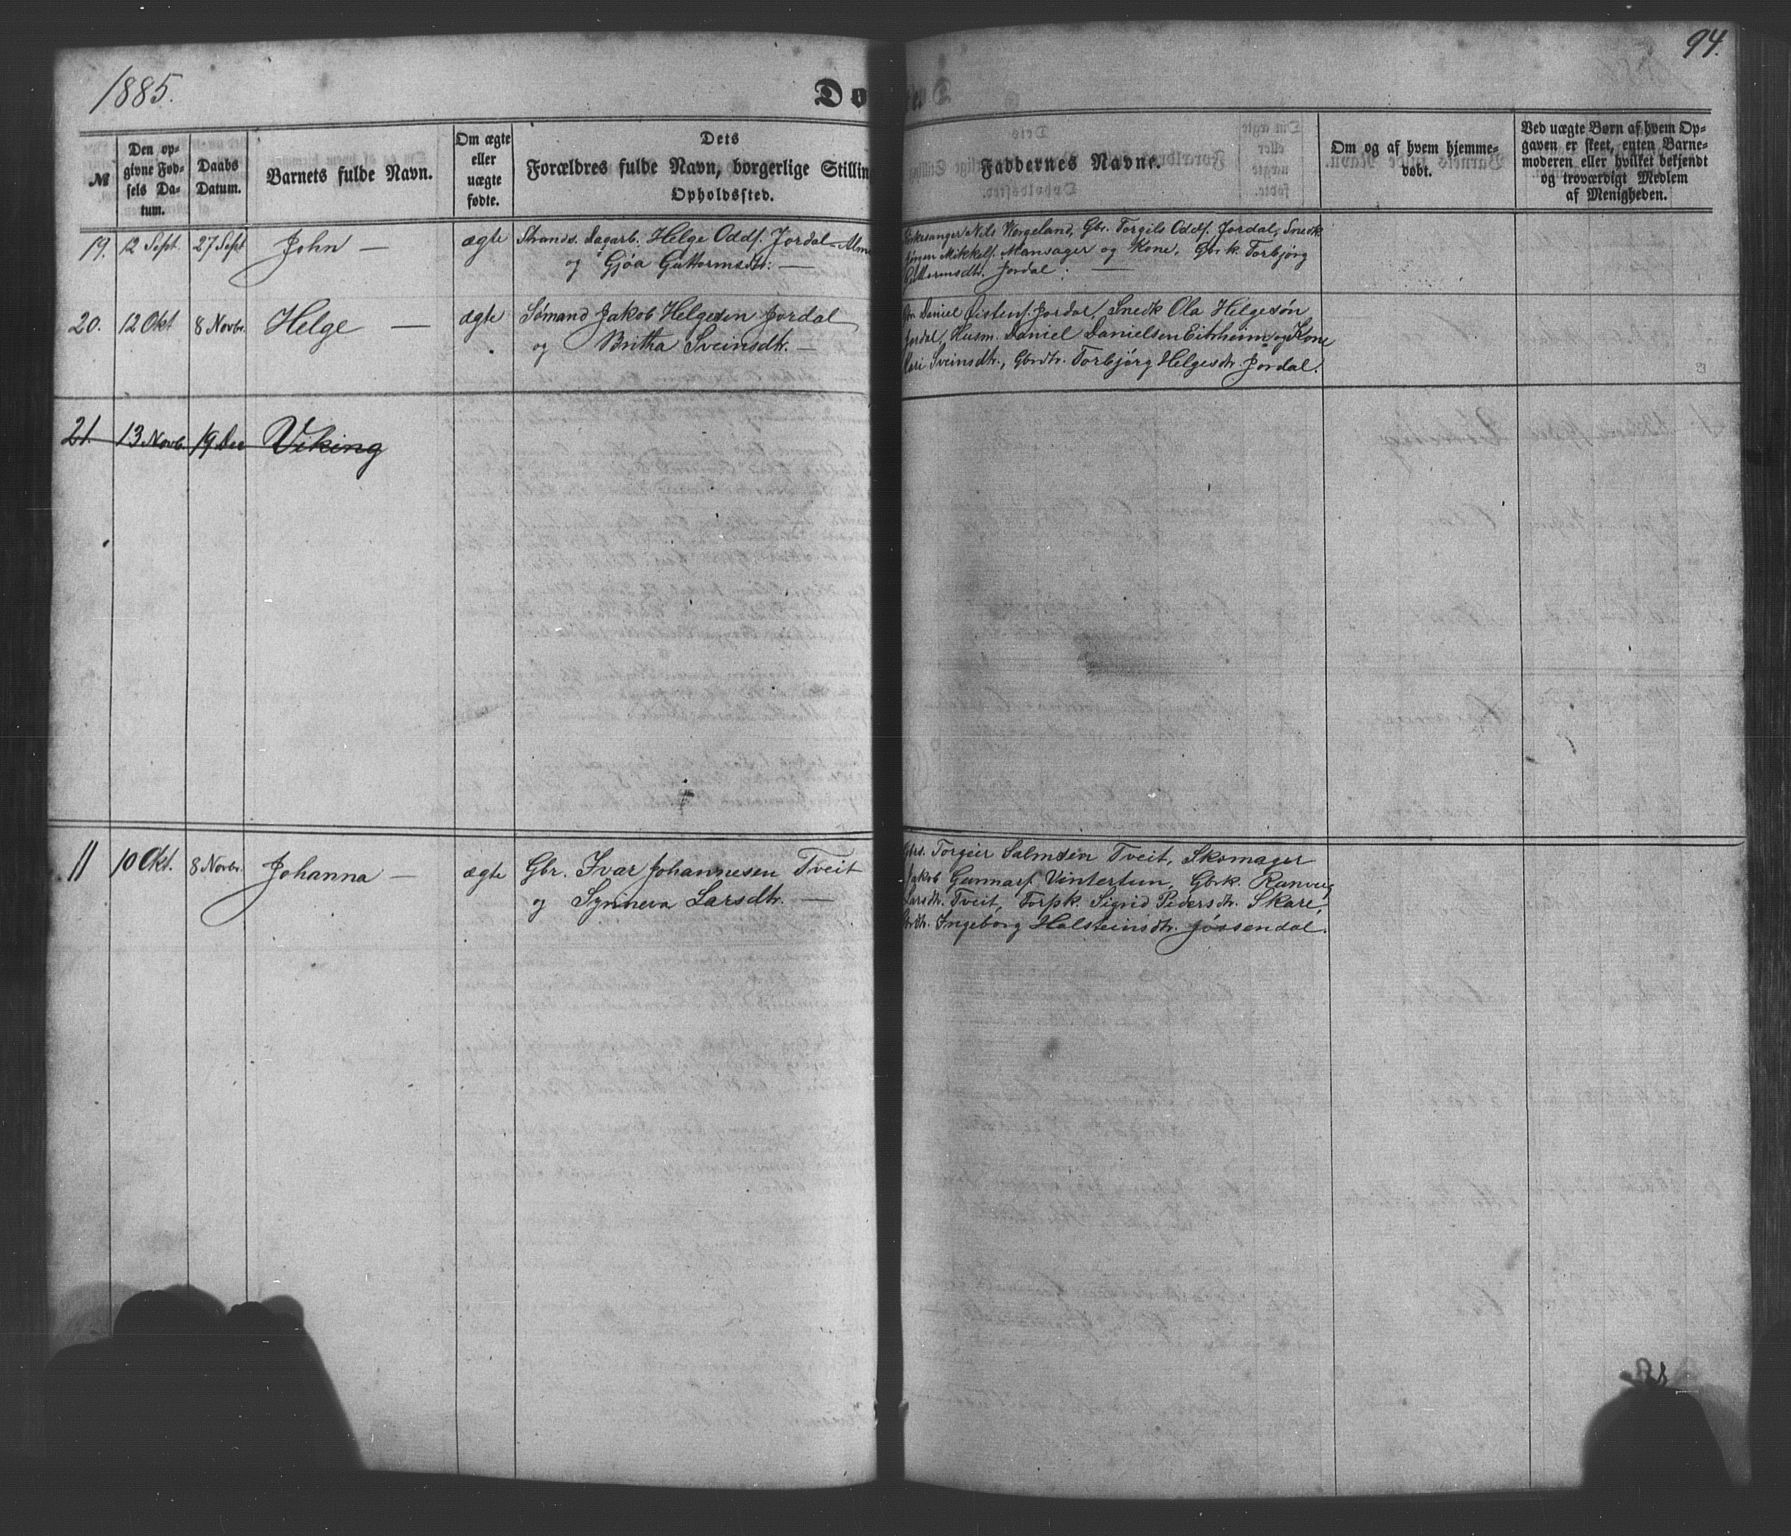 1885.
94.
Dø
№
Den op-
givne Fød-
sels Da-
tum.
Daabs
Datum.
Barnets fulde Navn.
Om ægte
eller
uægte
fødte.
Dets
Forældres fulde Navn, borgerlige Stillin
Opholdssted.
Faddernes Navne.
Om og af hvem hjemme-
døbt.
Ved uægte Børn af hvem Op-
gaven er skeet, enten Barne-
moderen eller hvilket bekjendt
og troværdigt Medlem
af Menigheden.
19. 12 Sept. 27 Sept John — ægte Strands. Dagarb. Helge Odds. Jordal - Alm
og Gjøa Guttormsdtr. —
Kirkesanger Nils Vergeland, Gbr. Torgils Odds. Jordal, Snedk
Mikkels. Mansager og Kone, Gbr.k. Torbjørg
Guttormsdtr. Jordal. —
20. 12 Okt 8 Novbr. Helge — ægte Sømand Jakob Helgesen Jordal
og Britha Sveinsdtr. —
Daniel Jordal, Snedk Ola Helgesøn
Jordal, Husm. Daniel Danielsen Eitrheim og Kone
Kari Sveinsdtr., Gbrdtr. Torbjørg Helgesdtr Jordal.
21. 13 Novb. 19 Dec Viking
11 10 Okt. 8 Novbr. Johanna — ægte Gbr. Ivar Johannesen Tveit
og Synneva Larsdtr. —
Gbr. Torgeir Salmsen Tveit, Skomager
Jakob Gunnars. Vintertun, Gbrk. Ranveig
Larsdtr. Tveit, Forpk. Sigrid Pedersdtr. Skare,
Ingeborg Halsteinsdtr. Jøssendal.